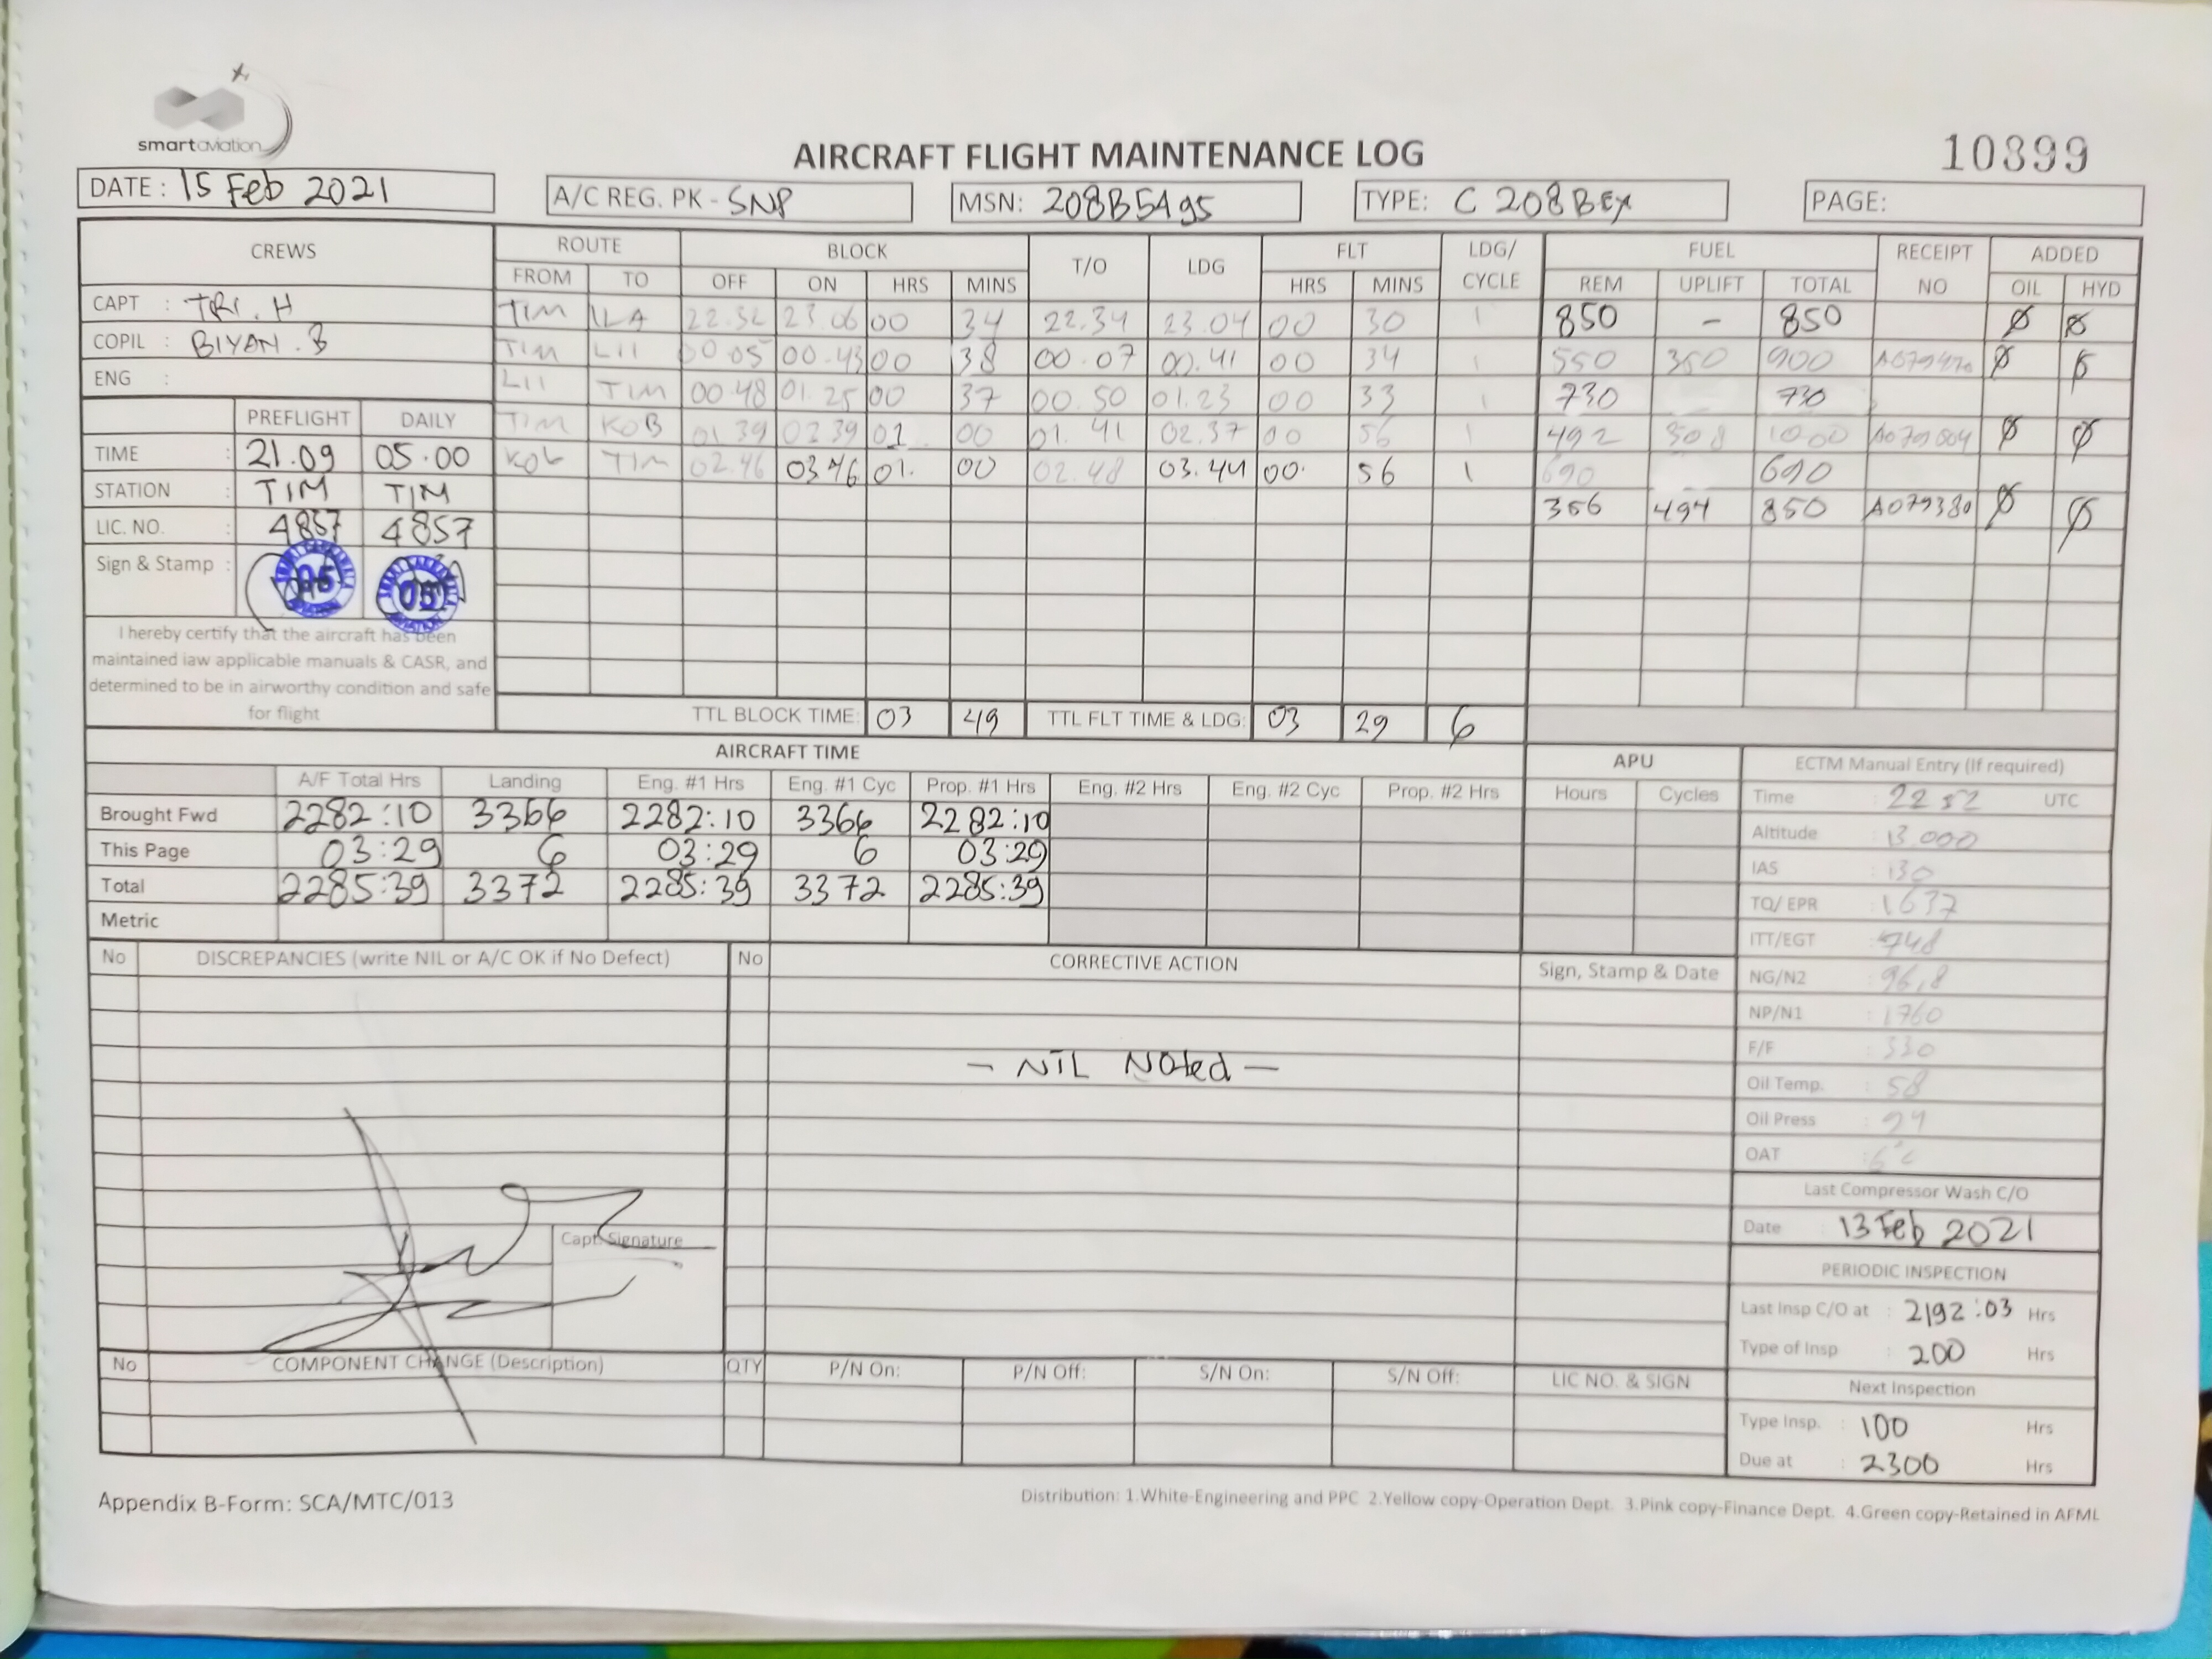 smartaviation
AIRCRAFT FLIGHT MAINTENANCE LOG
10899
DATE : 15 Feb 2021
A/C REG. PK - SNP
MSN: 208B5495
TYPE: C 208B EX
PAGE:
CREWS
ROUTE BLOCK T/O LDG FLT LDG/ CYCLE FUEL RECEIPT NO ADDED
FROM TO OFF ON HRS MINS HRS MINS REM UPLIFT TOTAL OIL HYD
CAPT : TRI . H
COPIL : BIYAN . B
ENG :
TIM ILA 22.32 23.06 00 34 22.34 23.04 00 30 1 850 - 850 Ø Ø
TIM LII 00 05 00.43 00 38 00.07 00.41 00 34 1 550 350 900 Ø Ø
LII TIM 00.48 01.25 00 37 00.50 01.23 00 33 1 730 730
TIM KOB 01 39 02 39 01 00 01.41 02.37 00 56 1 492 508 1000 Ø Ø
KOB TIM 02.46 03 46 01. 00 02.48 03.44 00. 56 1 690 690
356 494 850 A079380 Ø Ø
PREFLIGHT DAILY
TIME : 21.09 05.00
STATION : TIM TIM
LIC. NO. : 4857 4857
Sign & Stamp :
05
I hereby certify that the aircraft has been
maintained iaw applicable manuals & CASR, and
determined to be in airworthy condition and safe
for flight
TTL BLOCK TIME: 03 49 TTL FLT TIME & LDG: 03 29 6
AIRCRAFT TIME
APU
A/F Total Hrs Landing Eng. #1 Hrs Eng. #1 Cyc Prop. #1 Hrs Eng. #2 Hrs Eng. #2 Cyc Prop. #2 Hrs Hours Cycles
Brought Fwd 2282:10 3366 2282:10 3366 2282:10
This Page 03:29 6 03:29 6 03:29
Total 2285:39 3372 2285:39 3372 2285:39
Metric
ECTM Manual Entry (If required)
Time : 22 52 UTC
Altitude : 13.000
IAS : 130
TQ/ EPR : 1637
ITT/EGT : 748
NG/N2 : 96,8
NP/N1 : 1760
F/F : 330
Oil Temp. : 58
Oil Press : 94
OAT
Last Compressor Wash C/O
Date : 13 Feb 2021
PERIODIC INSPECTION
Last Insp C/O at : 2192:03 Hrs
Type of Insp : 200 Hrs
Next Inspection
Type Insp. : 100 Hrs
Due at : 2300 Hrs
No DISCREPANCIES (write NIL or A/C OK if No Defect) No CORRECTIVE ACTION Sign, Stamp & Date
- NIL Noted -
Capt. Signature
No COMPONENT CHANGE (Description) QTY P/N On: P/N Off: S/N On: S/N Off: LIC NO. & SIGN
Appendix B-Form: SCA/MTC/013
Distribution: 1.White-Engineering and PPC 2.Yellow copy-Operation Dept. 3.Pink copy-Finance Dept. 4.Green copy-Retained in AFML